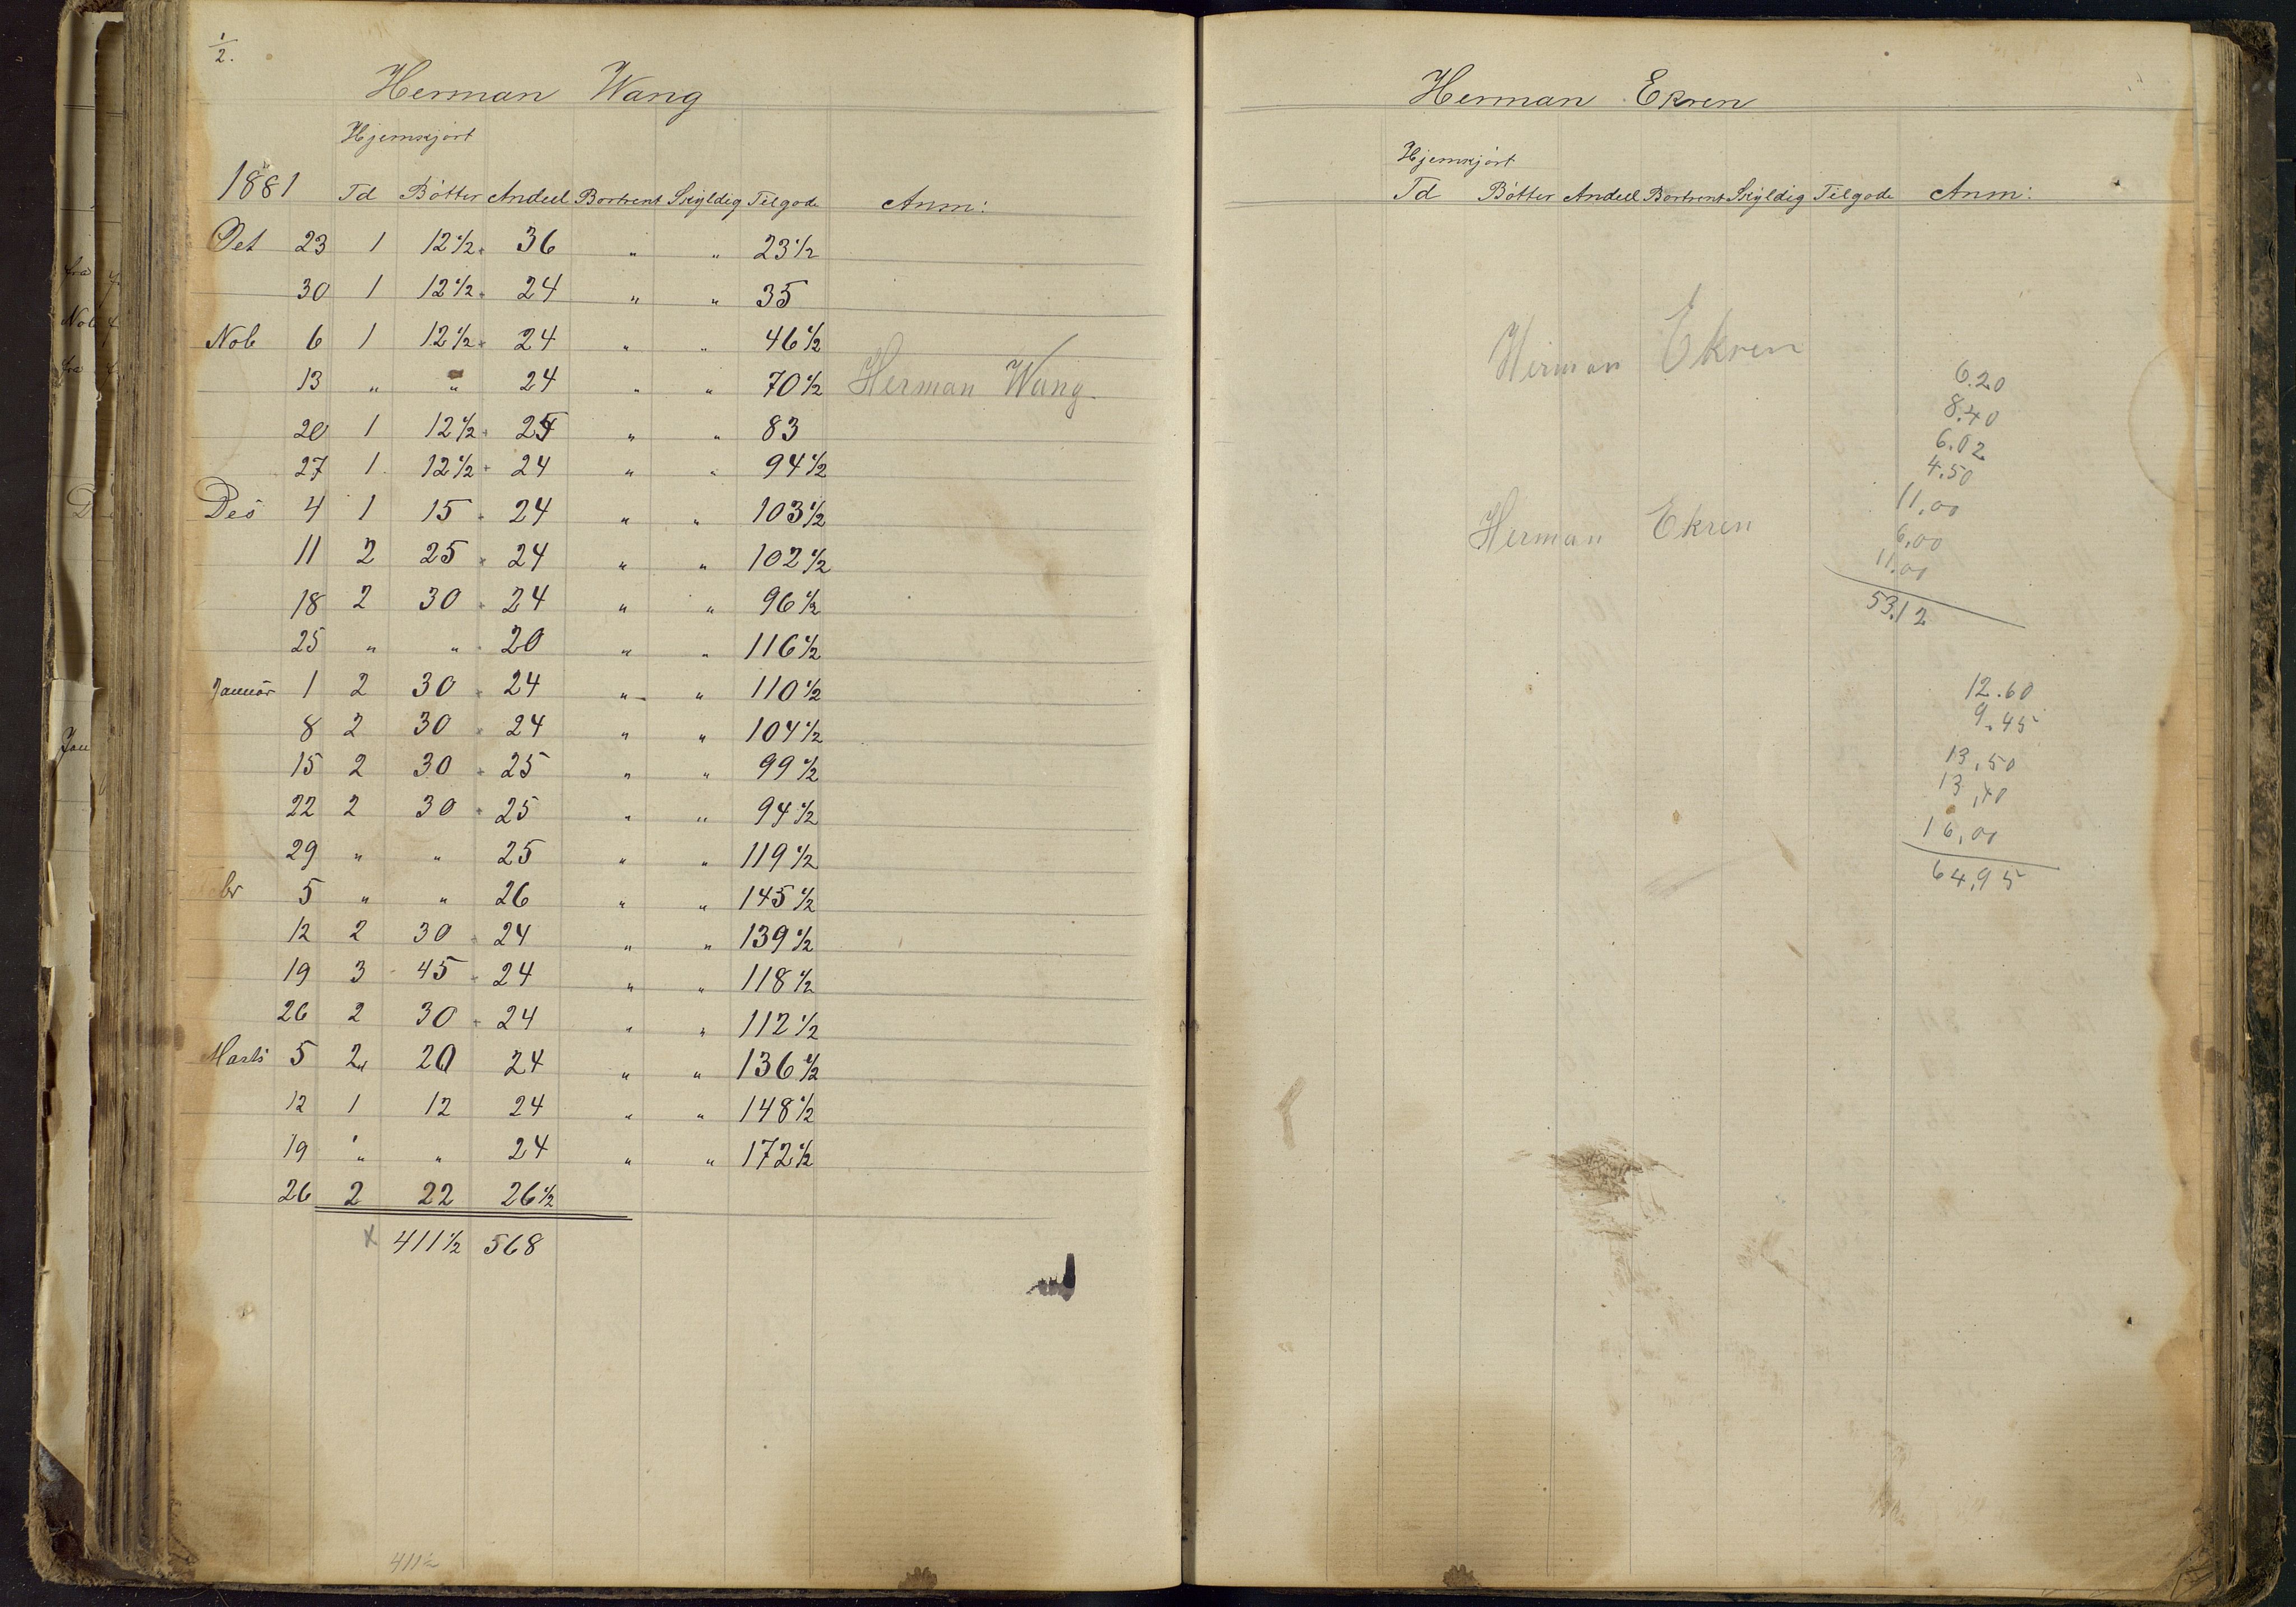 1/2.
Herman Wang
Hjemkjört
1881 Td Bötter Andeel Bortrent Skyldig Tilgode Anm:
Oct 23 1 12 1/2 36 " " 23 1/2
30 1 12 1/2 24 " " 35
Nob 6 1 12 1/2 24 " " 46 1/2
13 " " 24 " " 70 1/2 Herman Wang
20 1 12 1/2 25 " " 83
27 1 12 1/2 24 " " 94 1/2
Des 4 1 15 24 " " 103 1/2
11 2 25 24 " " 102 1/2
18 2 30 24 " " 96 1/2
25 " " 20 " " 116 1/2
Januar 1 2 30 24 " " 110 1/2
8 2 30 24 " " 104 1/2
15 2 30 25 " " 99 1/2
22 2 30 25 " " 94 1/2
29 " " 25 " " 119 1/2
5 " " 26 " " 145 1/2
12 2 30 24 " " 139 1/2
19 3 45 24 " " 118 1/2
26 2 30 24 " " 112 1/2
Marts 5 2 20 24 " " 136 1/2
12 1 12 24 " " 148 1/2
19 " " 24 " " 172 1/2
26 2 22 26 1/2
x 411 1/2 568
411 1/2
Herman Ekren
Hjemkjört
Td Bötter Andeel Bortrent Skyldig Tilgode Anm:
Herman Ekren
6.20
8.40
6.02
4.50
11,00
Herman Ekren
6,00
11.00
53.12
12.60
9.45
13,50
13,40
16,00
64,95